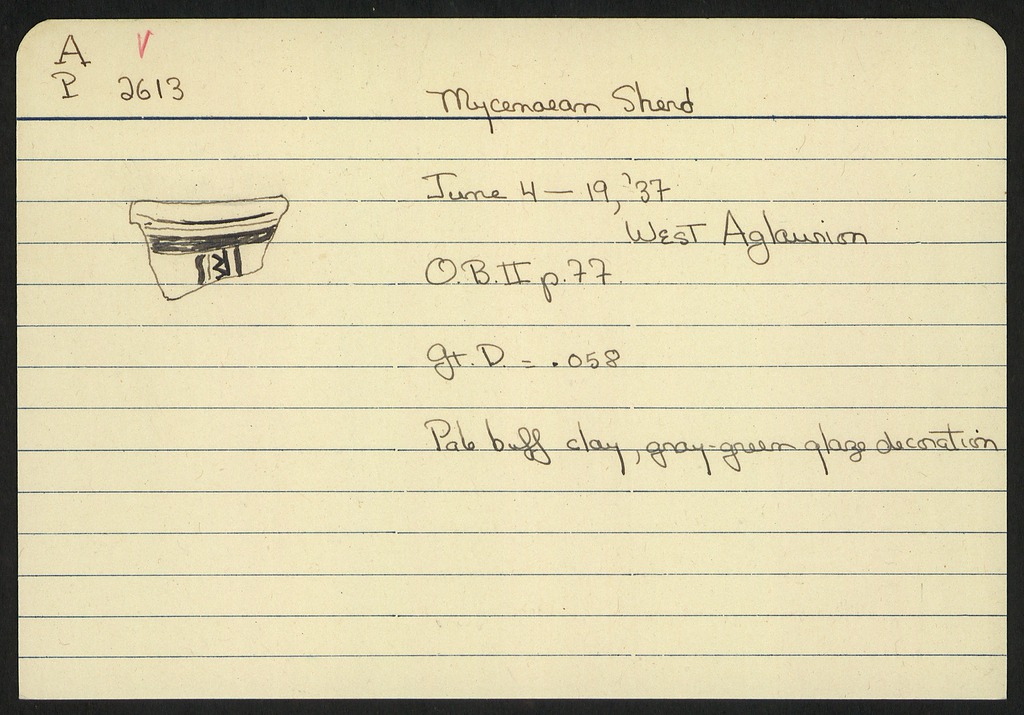 A
P 2613
Mycenaean Sherd
June 4 – 19, '37
West Aglaurion
O.B. II p. 77.
Gt. D. = .058
Pale buff clay, gray-green glaze decoration